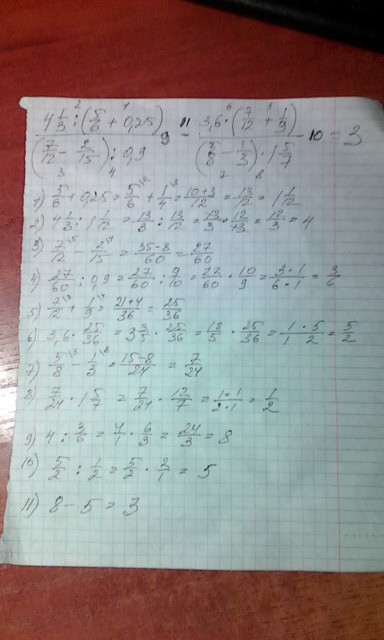 2 1 11 6 5
4 1/3 : (5/6 + 0,25) / (7/12 - 2/15) : 0,9 9 - 3,6 · (7/12 + 1/9) / (5/8 - 1/3) · 1 5/7 10 = 3
3 4 7 8
1) 5/6 + 0,25 = 5/6 + 1/4 = 10+3/12 = 13/12 = 1 1/12
2) 4 1/3 : 1 1/12 = 13/3 : 13/12 = 13/3 · 12/13 = 12/3 = 4
3) 7/12 - 2/15 = 35-8/60 = 27/60
4) 27/60 : 0,9 = 27/60 : 9/10 = 27/60 · 10/9 = 3·1/6·1 = 3/6
5) 7/12 + 1/9 = 21+4/36 = 25/36
6) 3,6 · 25/36 = 3 3/5 · 25/36 = 18/5 · 25/36 = 1·5/1·2 = 5/2
7) 5/8 - 1/3 = 15-8/24 = 7/24
8) 7/24 · 1 5/7 = 7/24 · 12/7 = 1·1/2·1 = 1/2
9) 4 : 3/6 = 4/1 · 6/3 = 24/3 = 8
10) 5/2 : 1/2 = 5/2 · 2/1 = 5
11) 8 - 5 = 3